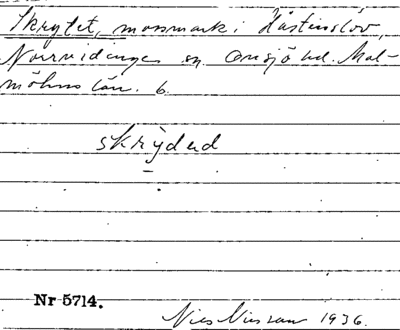 Skrytet, mossmark i Hästinslöv,
Norrvidinge sn Onsjö hd. Mal-
möhus län. 6.
skrỳded
Nr 5714.
1936.